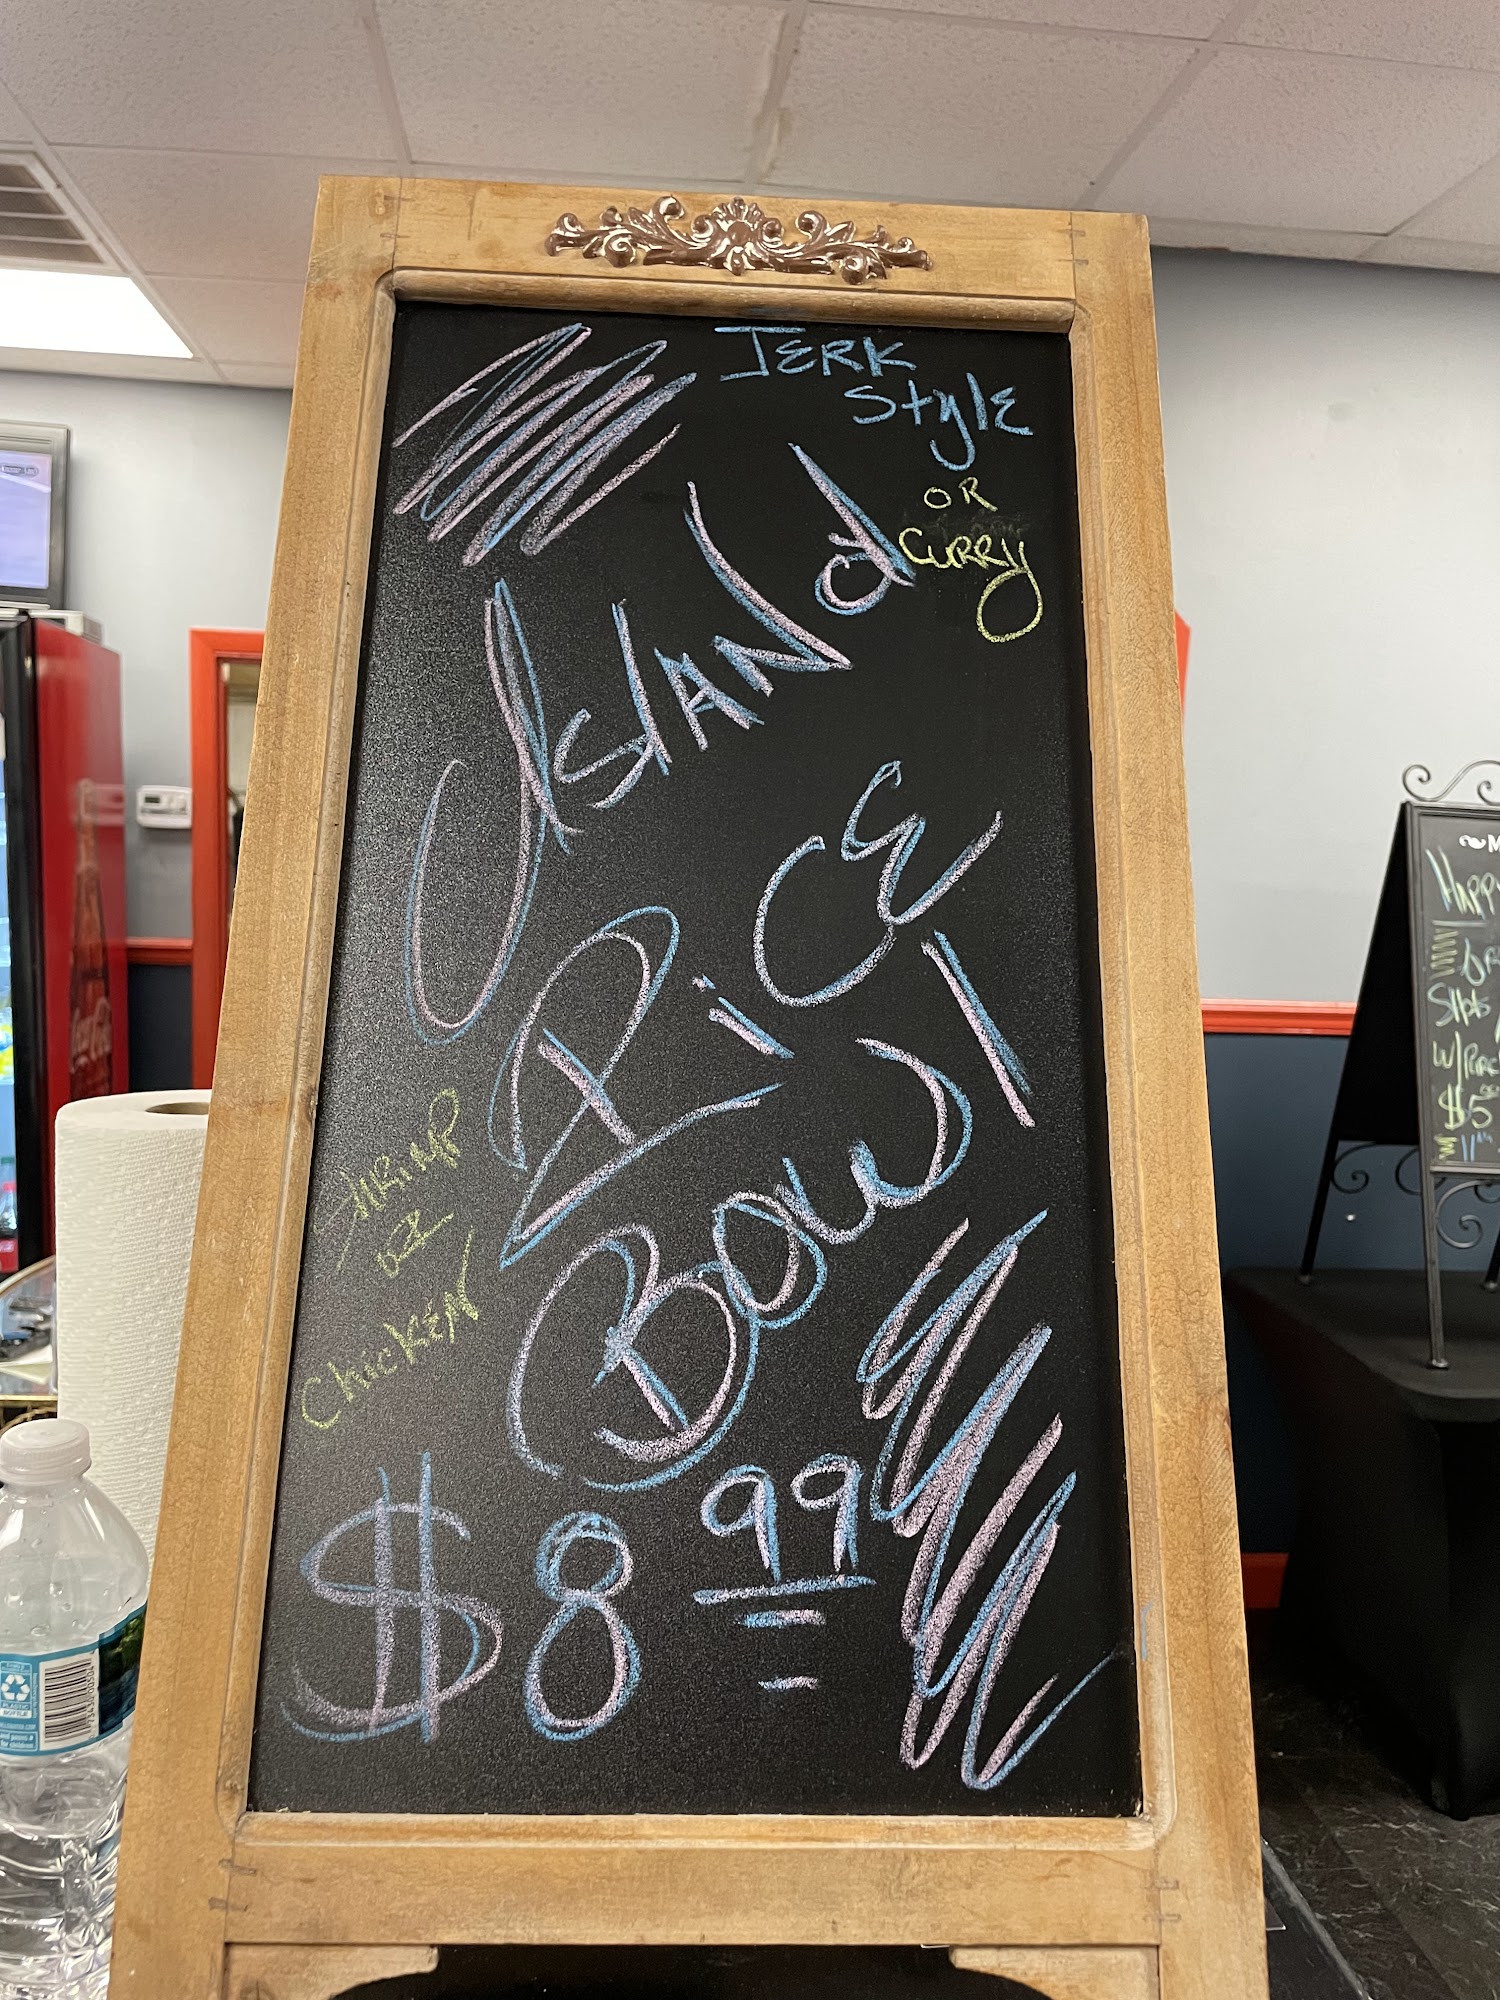 JERK
StylE
OR
CURRY
IslANd
RiCE
BOWl
SHRIMP
OR
ChickEN
$8.99
Coca-Cola
HAPPY
W/PURC
$5
PLASTIC
BOTTLE